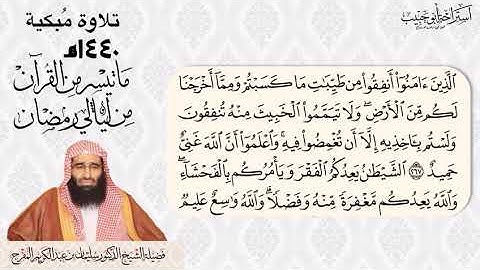 استراحة أبي نجيب
تلاوة مُبكية
١٤٤٠هـ
ما تيسر من القرآن
من ليالي رمضان
ٱلَّذِينَ ءَامَنُوٓا۟ أَنفِقُوا۟ مِن طَيِّبَـٰتِ مَا كَسَبْتُمْ وَمِمَّآ أَخْرَجْنَا
لَكُم مِّنَ ٱلْأَرْضِ ۖ وَلَا تَيَمَّمُوا۟ ٱلْخَبِيثَ مِنْهُ تُنفِقُونَ
وَلَسْتُم بِـَٔاخِذِيهِ إِلَّآ أَن تُغْمِضُوا۟ فِيهِ ۚ وَٱعْلَمُوٓا۟ أَنَّ ٱللَّهَ غَنِىٌّ
حَمِيدٌ ٢٦٧ ٱلشَّيْطَـٰنُ يَعِدُكُمُ ٱلْفَقْرَ وَيَأْمُرُكُم بِٱلْفَحْشَآءِ ۖ
وَٱللَّهُ يَعِدُكُم مَّغْفِرَةً مِّنْهُ وَفَضْلًا ۗ وَٱللَّهُ وَٰسِعٌ عَلِيمٌ
فضيلة الشيخ الدكتور سليمان بن عبدالكريم المفرج